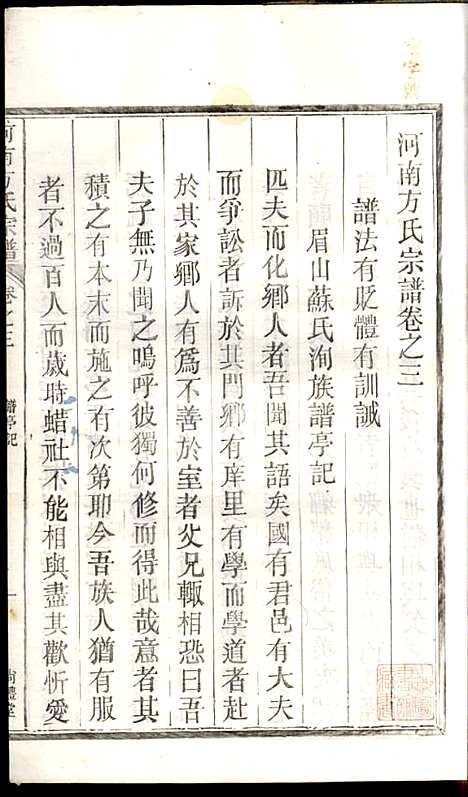 河南方氏宗譜卷之三
譜法有貶體有訓誡
眉山蘇氏洵族譜亭記
匹夫而化鄉人者吾聞其語矣國有君邑有大夫
而爭訟者訴於其門鄉有庠里有學而學道者赴
於其家鄉人有爲不善於室者父兄輙相恐曰吾
夫子無乃聞之嗚呼彼獨何修而得此哉意者其
積之有本末而施之有次第耶今吾族人猶有服
者不過百人而歲時蜡社不能相與盡其歡忻愛
河南方氏宗譜
卷之三
譜亭記
一
尚禮堂